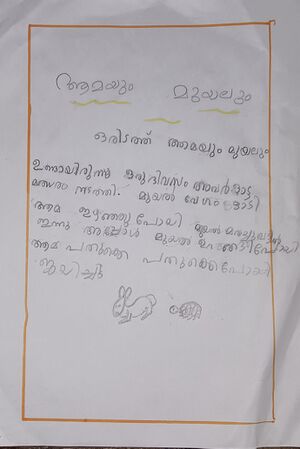 ആമയും മുയലും
ഒരിടത്ത് ആമയും മുയലും
ഉണ്ടായിരുന്നു ഒരു ദിവസം അവർ ഓട്ട
മത്സരം നടത്തി. മുയൽ വേഗം ഓടി
ആമ ഇഴഞ്ഞു പോയി മുയൽ
ഇരുന്നു അപ്പോൾ മുയൽ ഉറങ്ങിപോയി
ആമ പതുക്കെ പതുക്കെപോയി
ജയിച്ചു